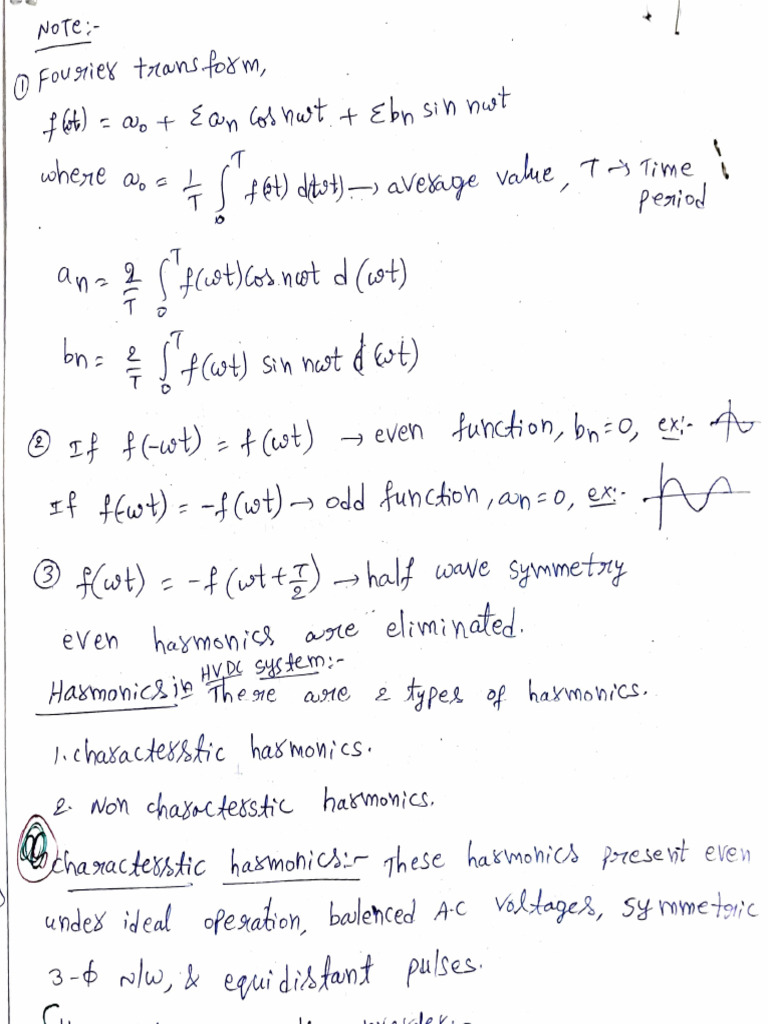 NOTE:-
① Fourier transform,
f(ωt) = a₀ + Σan Cos nωt + Σbn sin nωt
where a₀ = 1/T ∫₀ᵀ f(ωt) d(ωt) → average value, T → Time
period
an = 2/T ∫₀ᵀ f(ωt) Cos nωt d(ωt)
bn = 2/T ∫₀ᵀ f(ωt) sin nωt d(ωt)
② If f(-ωt) = f(ωt) → even function, bn=0, ex:-
If f(-ωt) = -f(ωt) → odd function, an=0, ex:-
③ f(ωt) = -f(ωt + T/2) → half wave symmetry
even harmonics are eliminated.
Harmonics in HVDC system:- There are 2 types of harmonics.
1. characterstic harmonics.
2. Non characterstic harmonics.
characterstic harmonics:- These harmonics present even
under ideal operation, balenced A.C voltages, symmetric
3-ϕ N/W, & equidistant pulses.